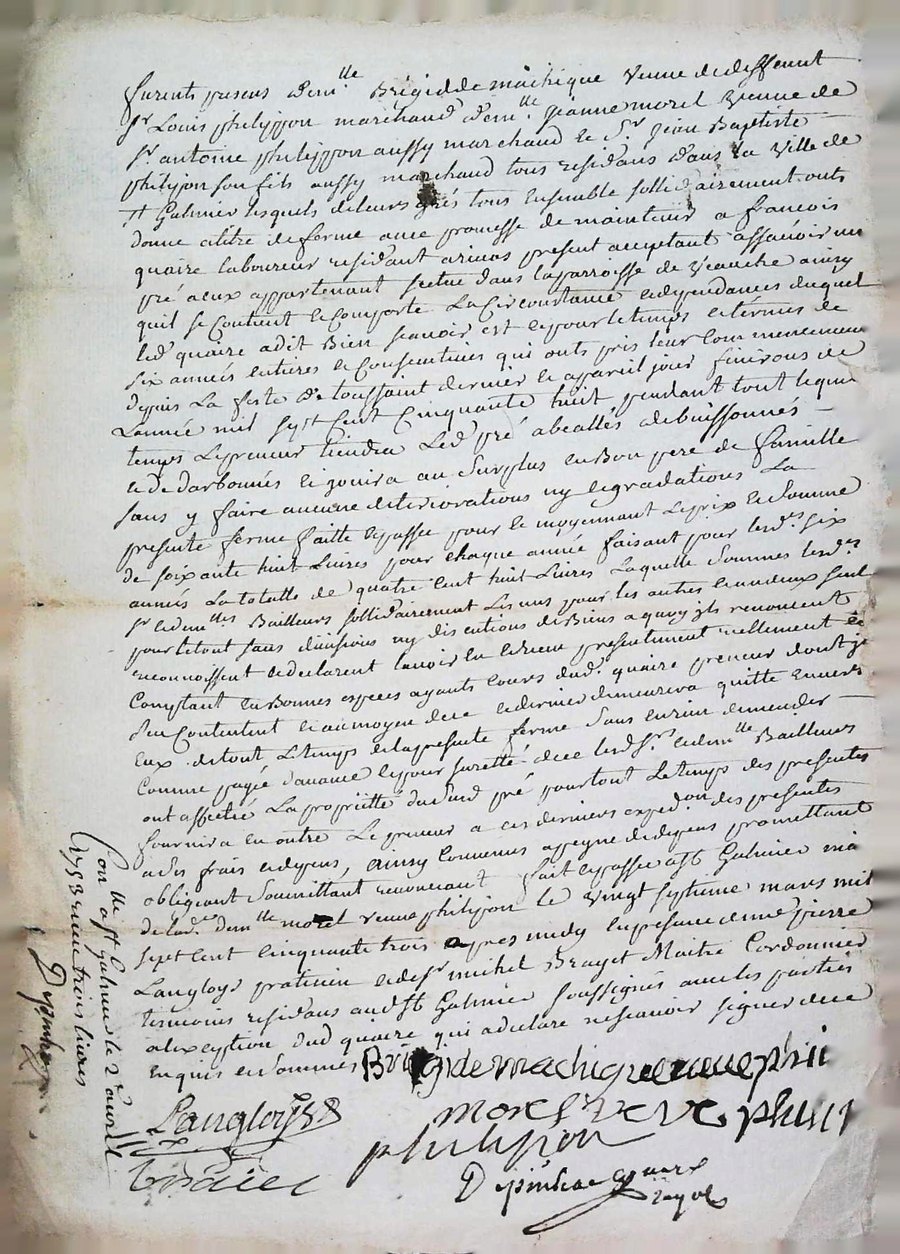 furents presens dem.lle Brigidde machique veuve de deffeunt
Sr Louis philippon marchand dem.lle Jeanne morel veuve de
Sr antoine philippon aussy marchand le Sr Jean Baptiste
philipon son fils aussy marchand tous residans dans la ville de
St Galmier lesquels de leurs grés tous ensemble sollidairement onts
donne a titre de ferme avec promesse de maintenir a francois
quaire laboureur residant present acceptant assavoir un
pré a eux appartenant scitue dans la parroisse de veauche ainsy
quil se contient le comporte la Circonstance et dependances duquel
led quaire a dit Bien scavoir est ce pour le temps et termes de
six annés entieres et consecutives qui onts pris leur commencement
depuis la feste de toussaint dernier et a pareil jour finirons de
Lannée mil sept Cent Cinquante huit pendant tout lequel
temps le preneur tiendra led pré a debuissonnés
et dedarbonnés et jouira au surplus en Bon pere de famille
sans y faire aucune deteriorations ny degradations La
presente ferme faitte et passée pour et moyennant le prix et somme
de soixante huit Livres pour chaque année faisant pour lesd.es six
annés La totalle de quatre Cent huit Livres Laquelle somme lesd.es
Sr et dem.lles Bailleurs sollidairement les uns pour les autres et un deux seul
pour le tout sans divisions ny discutions de Biens a quoy ils renoncent
reconnoissent et declarent lavoir eu et receu presentement reellement
Comptant en Bonnes especes ayants cours dud. quaire preneur dont
sen Contentent et au moyen de ce ce dernier demeurera quitte envers
Eux de tout le temps de la presente ferme sans en rien demender
Comme payée davance et pour suretté de ce lesd Sr et dem.lle Bailleurs
ont affectée La propriétté dud pré pour tout le temps des presentes
fournira en outre le preneur a ces derniers expedi.on des presentes
a des frais et depens, ainsy Convenus a peyne de depens promettant
obligeant soumittant renoncant fait et passee a St Galmier
de lad. dem.lle morel veuve philipon le vingt septieme mars mil
sept cent cinquante trois apres midy en presence de me pierre
Langloys praticien et de Sr michel Brayet Maitre Cordonnier
temoins residans aud St Galmier soussignés avec les parties
a lexception dud quaire qui a declare ne scavoir signer de ce
enquis et sommés Brigide machique veuve phili
morel veve phili
Langloys
philipon
Con.lle a St galmier le 2e avril
1753 recu trois livres